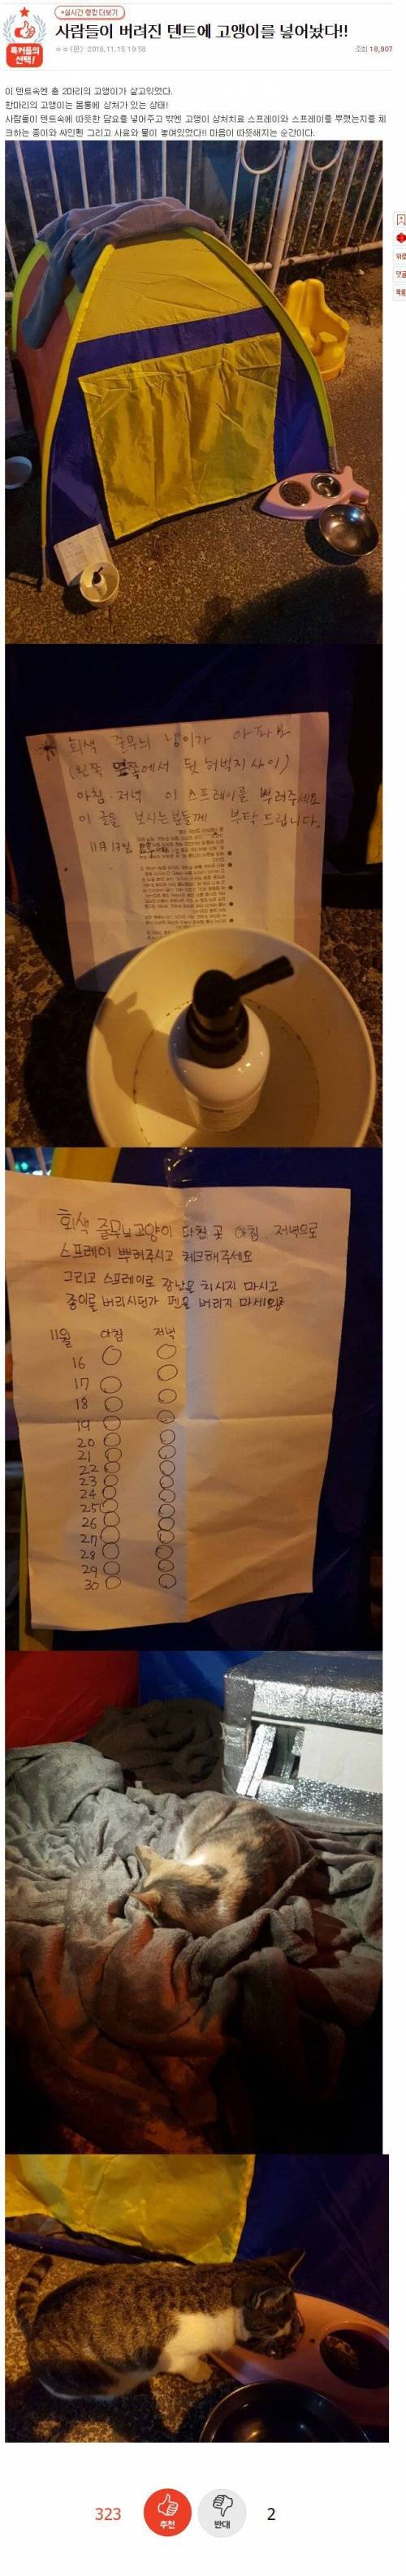 +실시간 랭킹 더보기
톡커들의
선택!
사람들이 버려진 텐트에 고앵이를 넣어놨다!!
ㅇㅇ (판) 2018.11.15 19:58
조회 18,907
이 텐트속엔 총 2마리의 고앵이가 살고있었다.
한마리의 고앵이는 몸통에 상처가 있는 상태!
사람들이 텐트속에 따뜻한 담요를 넣어주고 밖엔 고앵이 상처치료 스프레이와 스프레이를 뿌렸는지를 체
크하는 종이와 싸인펜 그리고 사료와 물이 놓여있었다!! 마음이 따뜻해지는 순간이다.
회색 줄무늬 냥이가 아파요
(왼쪽 옆쪽에서 뒷 허벅지 사이)
아침·저녁 이 스프레이를 뿌려주세요
이 글을 보시는분들께 부탁 드립니다.
11月 13일
회색 줄무늬고양이 다친 곳 아침. 저녁으로
스프레이 뿌려주시고 체크해주세요
그리고 스프레이로 장난을 치시지 마시고
종이를 버리시던가 펜을 버리지 마세요
11월 아침 저녁
16
17
18
19
20
21
22
23
24
25
26
27
28
29
30
323
추천
반대
2